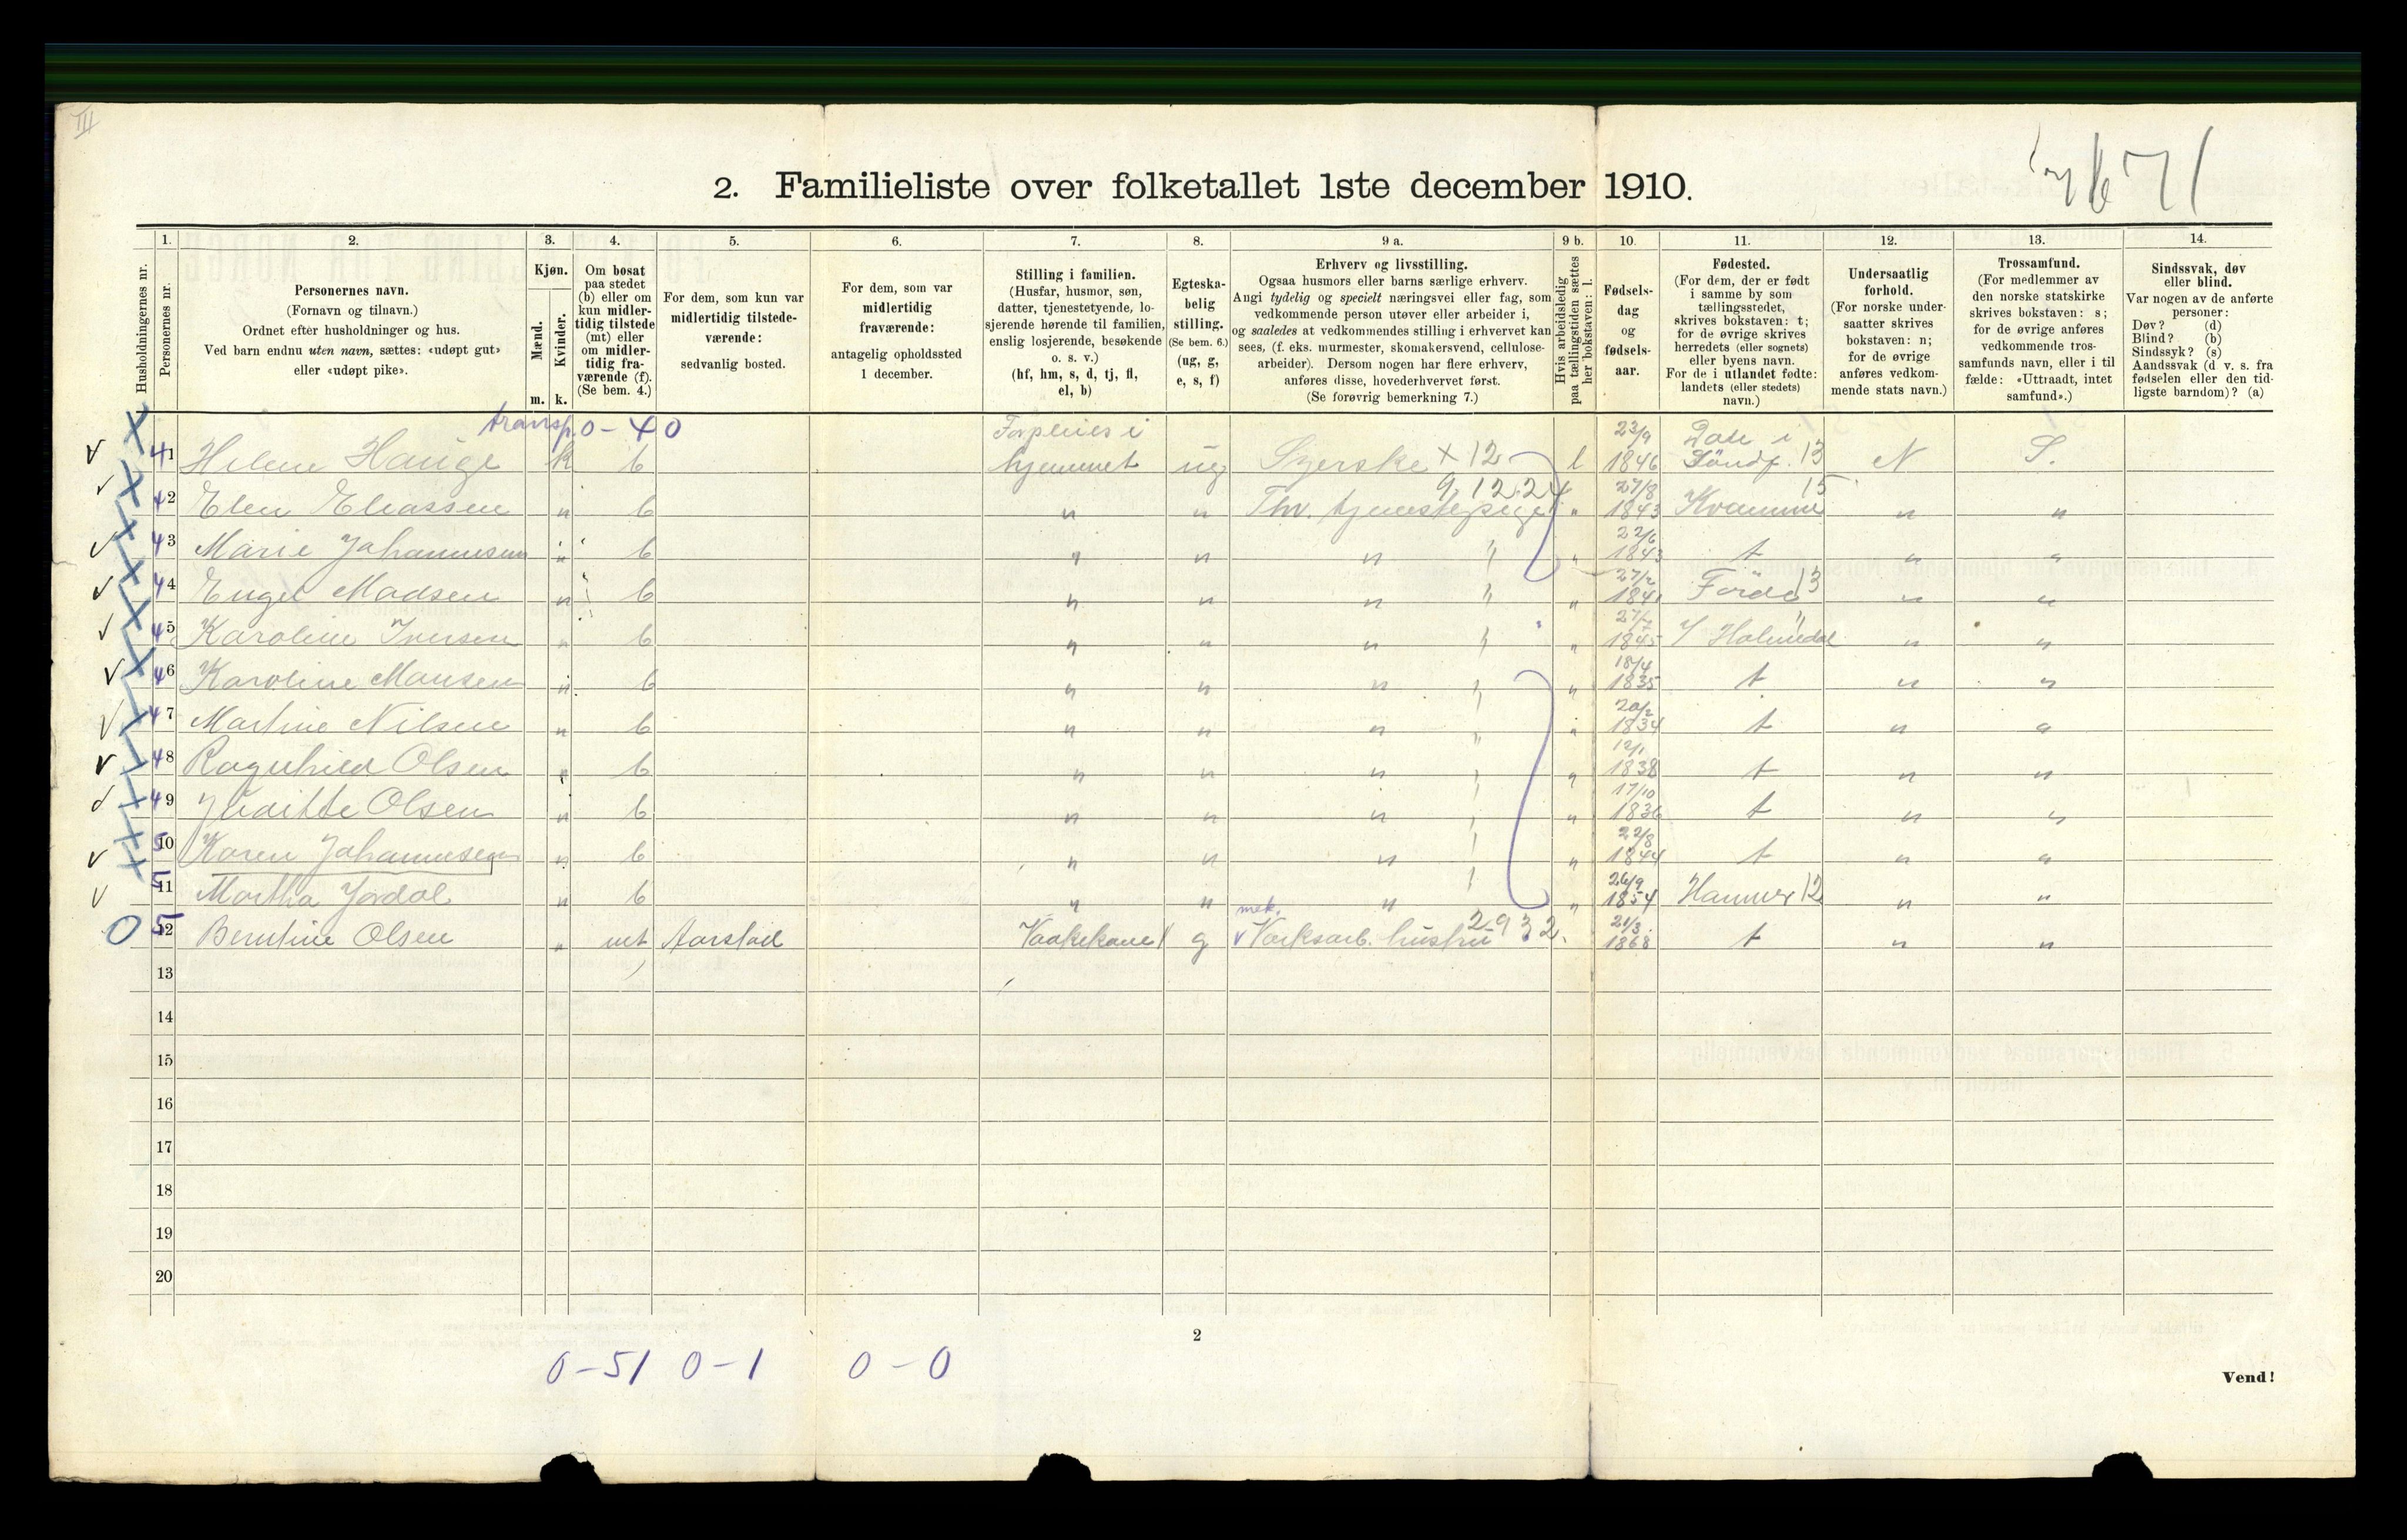 III
2. Familieliste over folketallet 1ste december 1910.
1. 2. 3. 4. 5. 6. 7. 8. 9 a. 9 b. 10. 11. 12. 13. 14.
Husholdningernes nr.
Personernes nr.
Personernes navn.
(Fornavn og tilnavn.)
Ordnet efter husholdninger og hus.
Ved barn endnu uten navn, sættes: «udøpt gut»
eller «udøpt pike».
Kjøn.
Mænd.
Kvinder.
m. k.
Om bosat
paa stedet
(b) eller om
kun midler-
tidig tilstede
(mt) eller
om midler-
tidig fra-
værende (f).
(Se bem. 4.)
For dem, som kun var
midlertidig tilstede-
værende:
sedvanlig bosted.
For dem, som var
midlertidig
fraværende:
antagelig opholdssted
1 december.
Stilling i familien.
(Husfar, husmor, søn,
datter, tjenestetyende, lo-
sjerende hørende til familien,
enslig losjerende, besøkende
o. s. v.)
(hf, hm, s, d, tj, fl,
el, b)
Egteska-
belig
stilling.
(Se bem. 6.)
(ug, g,
e, s, f)
Erhverv og livsstilling.
Ogsaa husmors eller barns særlige erhverv.
Angi tydelig og specielt næringsvei eller fag, som
vedkommende person utøver eller arbeider i,
og saaledes at vedkommendes stilling i erhvervet kan
sees, (f. eks. murmester, skomakersvend, cellulose-
arbeider). Dersom nogen har flere erhverv,
anføres disse, hovederhvervet først.
(Se forøvrig bemerkning 7.)
Hvis arbeidsledig
paa tællingstiden sættes
her bokstaven: l.
Fødsels-
dag
og
fødsels-
aar.
Fødested.
(For dem, der er født
i samme by som
tællingsstedet,
skrives bokstaven: t;
for de øvrige skrives
herredets (eller sognets)
eller byens navn.
For de i utlandet fødte:
landets (eller stedets)
navn.)
Undersaatlig
forhold.
(For norske under-
saatter skrives
bokstaven: n;
for de øvrige
anføres vedkom-
mende stats navn.)
Trossamfund.
(For medlemmer av
den norske statskirke
skrives bokstaven: s;
for de øvrige anføres
vedkommende tros-
samfunds navn, eller i til-
fælde: «Uttraadt, intet
samfund».)
Sindssvak, døv
eller blind.
Var nogen av de anførte
personer:
Døv? (d)
Blind? (b)
Sindssyk? (s)
Aandssvak (d. v. s. fra
fødselen eller den tid-
ligste barndom)? (a)
transp. 0-40
41 Helene Hauge k b Forpleies i hjemmet ug Syerske x 12 l 23/9 1846 i Söndf. 13 N S.
42 Elen Eliassen " b " " Thv. tjenestepige 9,12.24 " 27/8 1843 Kvamme 15 " "
43 Marie Johannesen " b " " " " " 22/6 1843 t " "
44 Engel Madsen " b " " " " " 27/2 1841 Förde 13 " "
45 Karoline Iversen " b " " " " " 27/7 1845 Y Holmedal " "
46 Karoline Monsen " b " " " " " 18/4 1835 t " "
47 Martine Nilsen " b " " " " " 20/2 1834 t " "
48 Ragnhild Olsen " b " " " " " 12/1 1838 t " "
49 Olsen " b " " " " " 17/10 1836 t " "
50 10 Karen Johannesen " b " " " " " 22/8 1844 t " "
5 11 Martha Jordal " b " " " " " 26/9 1854 Hammer 12 " "
5 12 Berntine Olsen " mt Aarstad Vaakekone g mek. Verksarb. hustru 2932. 21/3 1868 t " "
13
14
15
16
17
18
19
20
2
0-51 0-1 0-0
Vend!